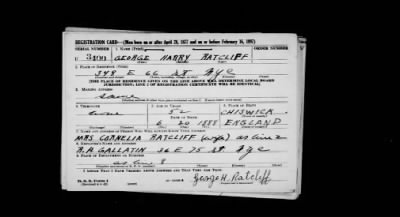 REGISTRATION CARD—(Men born on or after April 28, 1877 and on or before February 16, 1897)
SERIAL NUMBER 1. NAME (Print) ORDER NUMBER
U GEORGE HARRY RATCLIFF
2. PLACE OF RESIDENCE (Print)
348 E 66 ST NYC
[THE PLACE OF RESIDENCE GIVEN ON THE LINE ABOVE WILL DETERMINE LOCAL BOARD
JURISDICTION; LINE 2 OF REGISTRATION CERTIFICATE WILL BE IDENTICAL]
3. MAILING ADDRESS
same
4. TELEPHONE 5. AGE IN YEARS 6. PLACE OF BIRTH
none 52 CHISWICK
DATE OF BIRTH
6 20 1889 ENGLAND
7. NAME AND ADDRESS OF PERSON WHO WILL ALWAYS KNOW YOUR ADDRESS
MRS CORNELIA RATCLIFF (wife) as line 2
8. EMPLOYER'S NAME AND ADDRESS
GALLATIN 36 E 75 ST NYC
9. PLACE OF EMPLOYMENT OR BUSINESS
as line 8
I AFFIRM THAT I HAVE VERIFIED ABOVE ANSWERS AND THAT THEY ARE TRUE.
George H. Ratcliff
D. S. S. Form 1